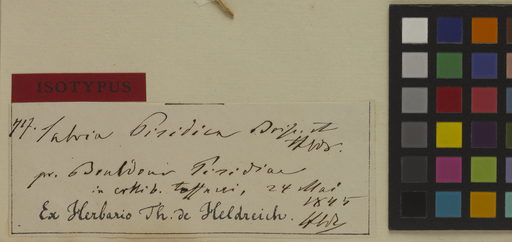 ISOTYPUS
747. Salvia Pisidica Boiss. et
Hldr.
pr. Bouldour Pisidiae
in collib. 24 Mai
1845
Ex Herbario Th. de Heldreich. Hldr